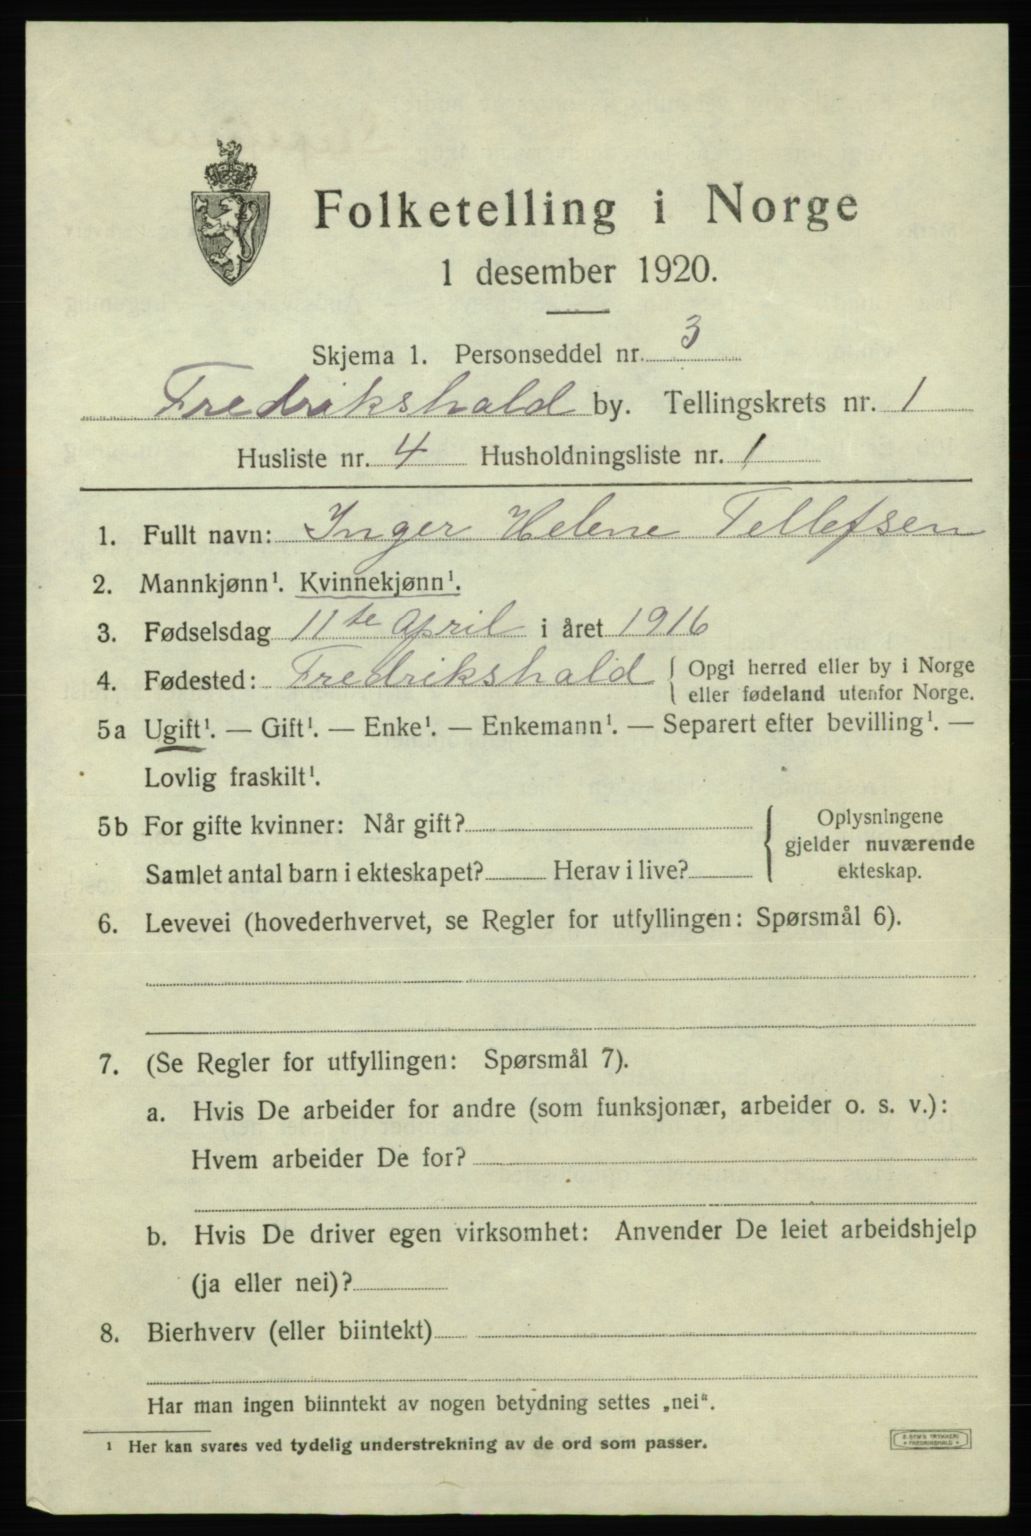 Folketelling i Norge
1 desember 1920.
Skjema 1. Personseddel nr. 3
Fredrikshald by. Tellingskrets nr. 1
Husliste nr. 4 Husholdningsliste nr. 1
1. Fullt navn: Inger Helene Tellefsen
2. Mannkjønn¹. Kvinnekjønn¹.
3. Fødselsdag 11te april i året 1916
4. Fødested: Fredrikshald { Opgi herred eller by i Norge
eller fødeland utenfor Norge.
5a Ugift¹. — Gift¹. — Enke¹. — Enkemann¹. — Separert efter bevilling¹. —
Lovlig fraskilt¹.
5b For gifte kvinner: Når gift?
Samlet antal barn i ekteskapet? Herav i live?
Oplysningene
gjelder nuværende
ekteskap.
6. Levevei (hovederhvervet, se Regler for utfyllingen: Spørsmål 6).
7. (Se Regler for utfyllingen: Spørsmål 7).
a. Hvis De arbeider for andre (som funksjonær, arbeider o. s. v.):
Hvem arbeider De for?
b. Hvis De driver egen virksomhet: Anvender De leiet arbeidshjelp
(ja eller nei)?
8. Bierhverv (eller biintekt)
Har man ingen biinntekt av nogen betydning settes „nei".
¹ Her kan svares ved tydelig understrekning av de ord som passer.